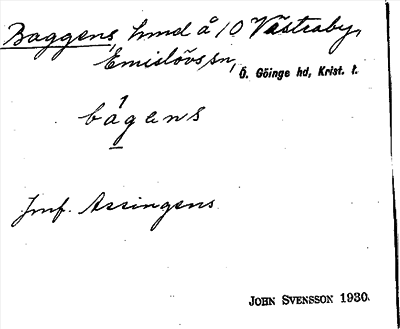 Baggens, hmd å 10 Västraby,
Emislövs sn, Ö. Göinge hd, Krist. l.
bágens
Jmf. Assingens
JOHN SVENSSON 1930.